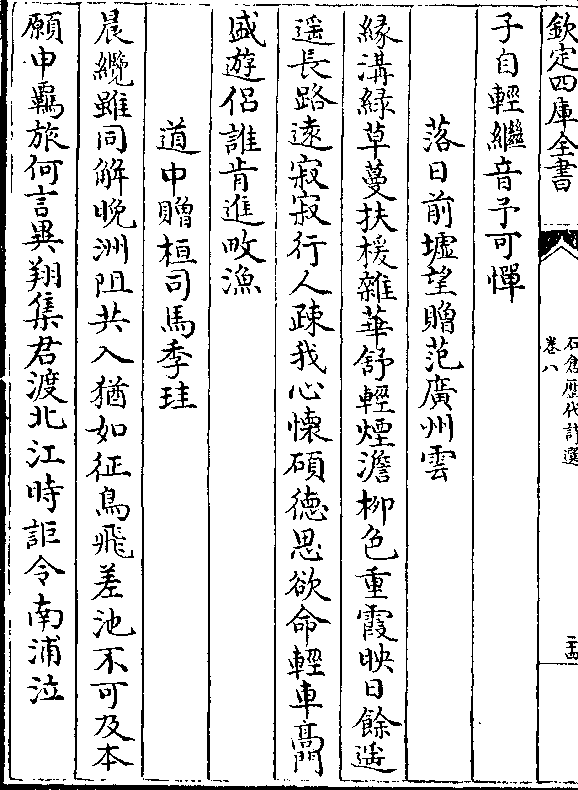 欽定四庫全書
石倉歴代詩選
卷八
子自輕繼音予可憚
落日前墟望贈范廣州雲
縁溝緑草蔓扶楥雜華舒輕煙澹栁色重霞映日餘遥
遥長路遠寂寂行人疎我心懐碩徳思欲命輕車髙門
盛遊侶誰肯進畋漁
道中贈桓司馬季珪
晨纜雖同解晚洲阻共入猶如征鳥飛差池不可及本
願申羈旅何言異翔集君渡北江時詎令南浦泣